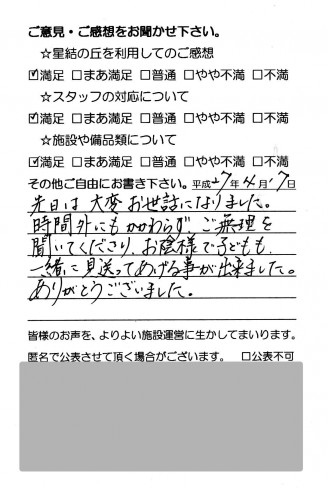 ご意見・ご感想をお聞かせ下さい。
☆星結の丘を利用してのご感想
☑満足 □まあ満足 □普通 □やや不満 □不満
☆スタッフの対応について
☑満足 □まあ満足 □普通 □やや不満 □不満
☆施設や備品類について
☑満足 □まあ満足 □普通 □やや不満 □不満
その他ご自由にお書き下さい。平成27年4月17日
先日は大変お世話になりました。
時間外にもかかわらずご無理を
聞いてくださり、お陰様で子どもも、
一緒に見送ってあげる事が出来ました。
ありがとうございました。
皆様のお声を、よりよい施設運営に生かしてまいります。
匿名で公表させて頂く場合がございます。 □公表不可